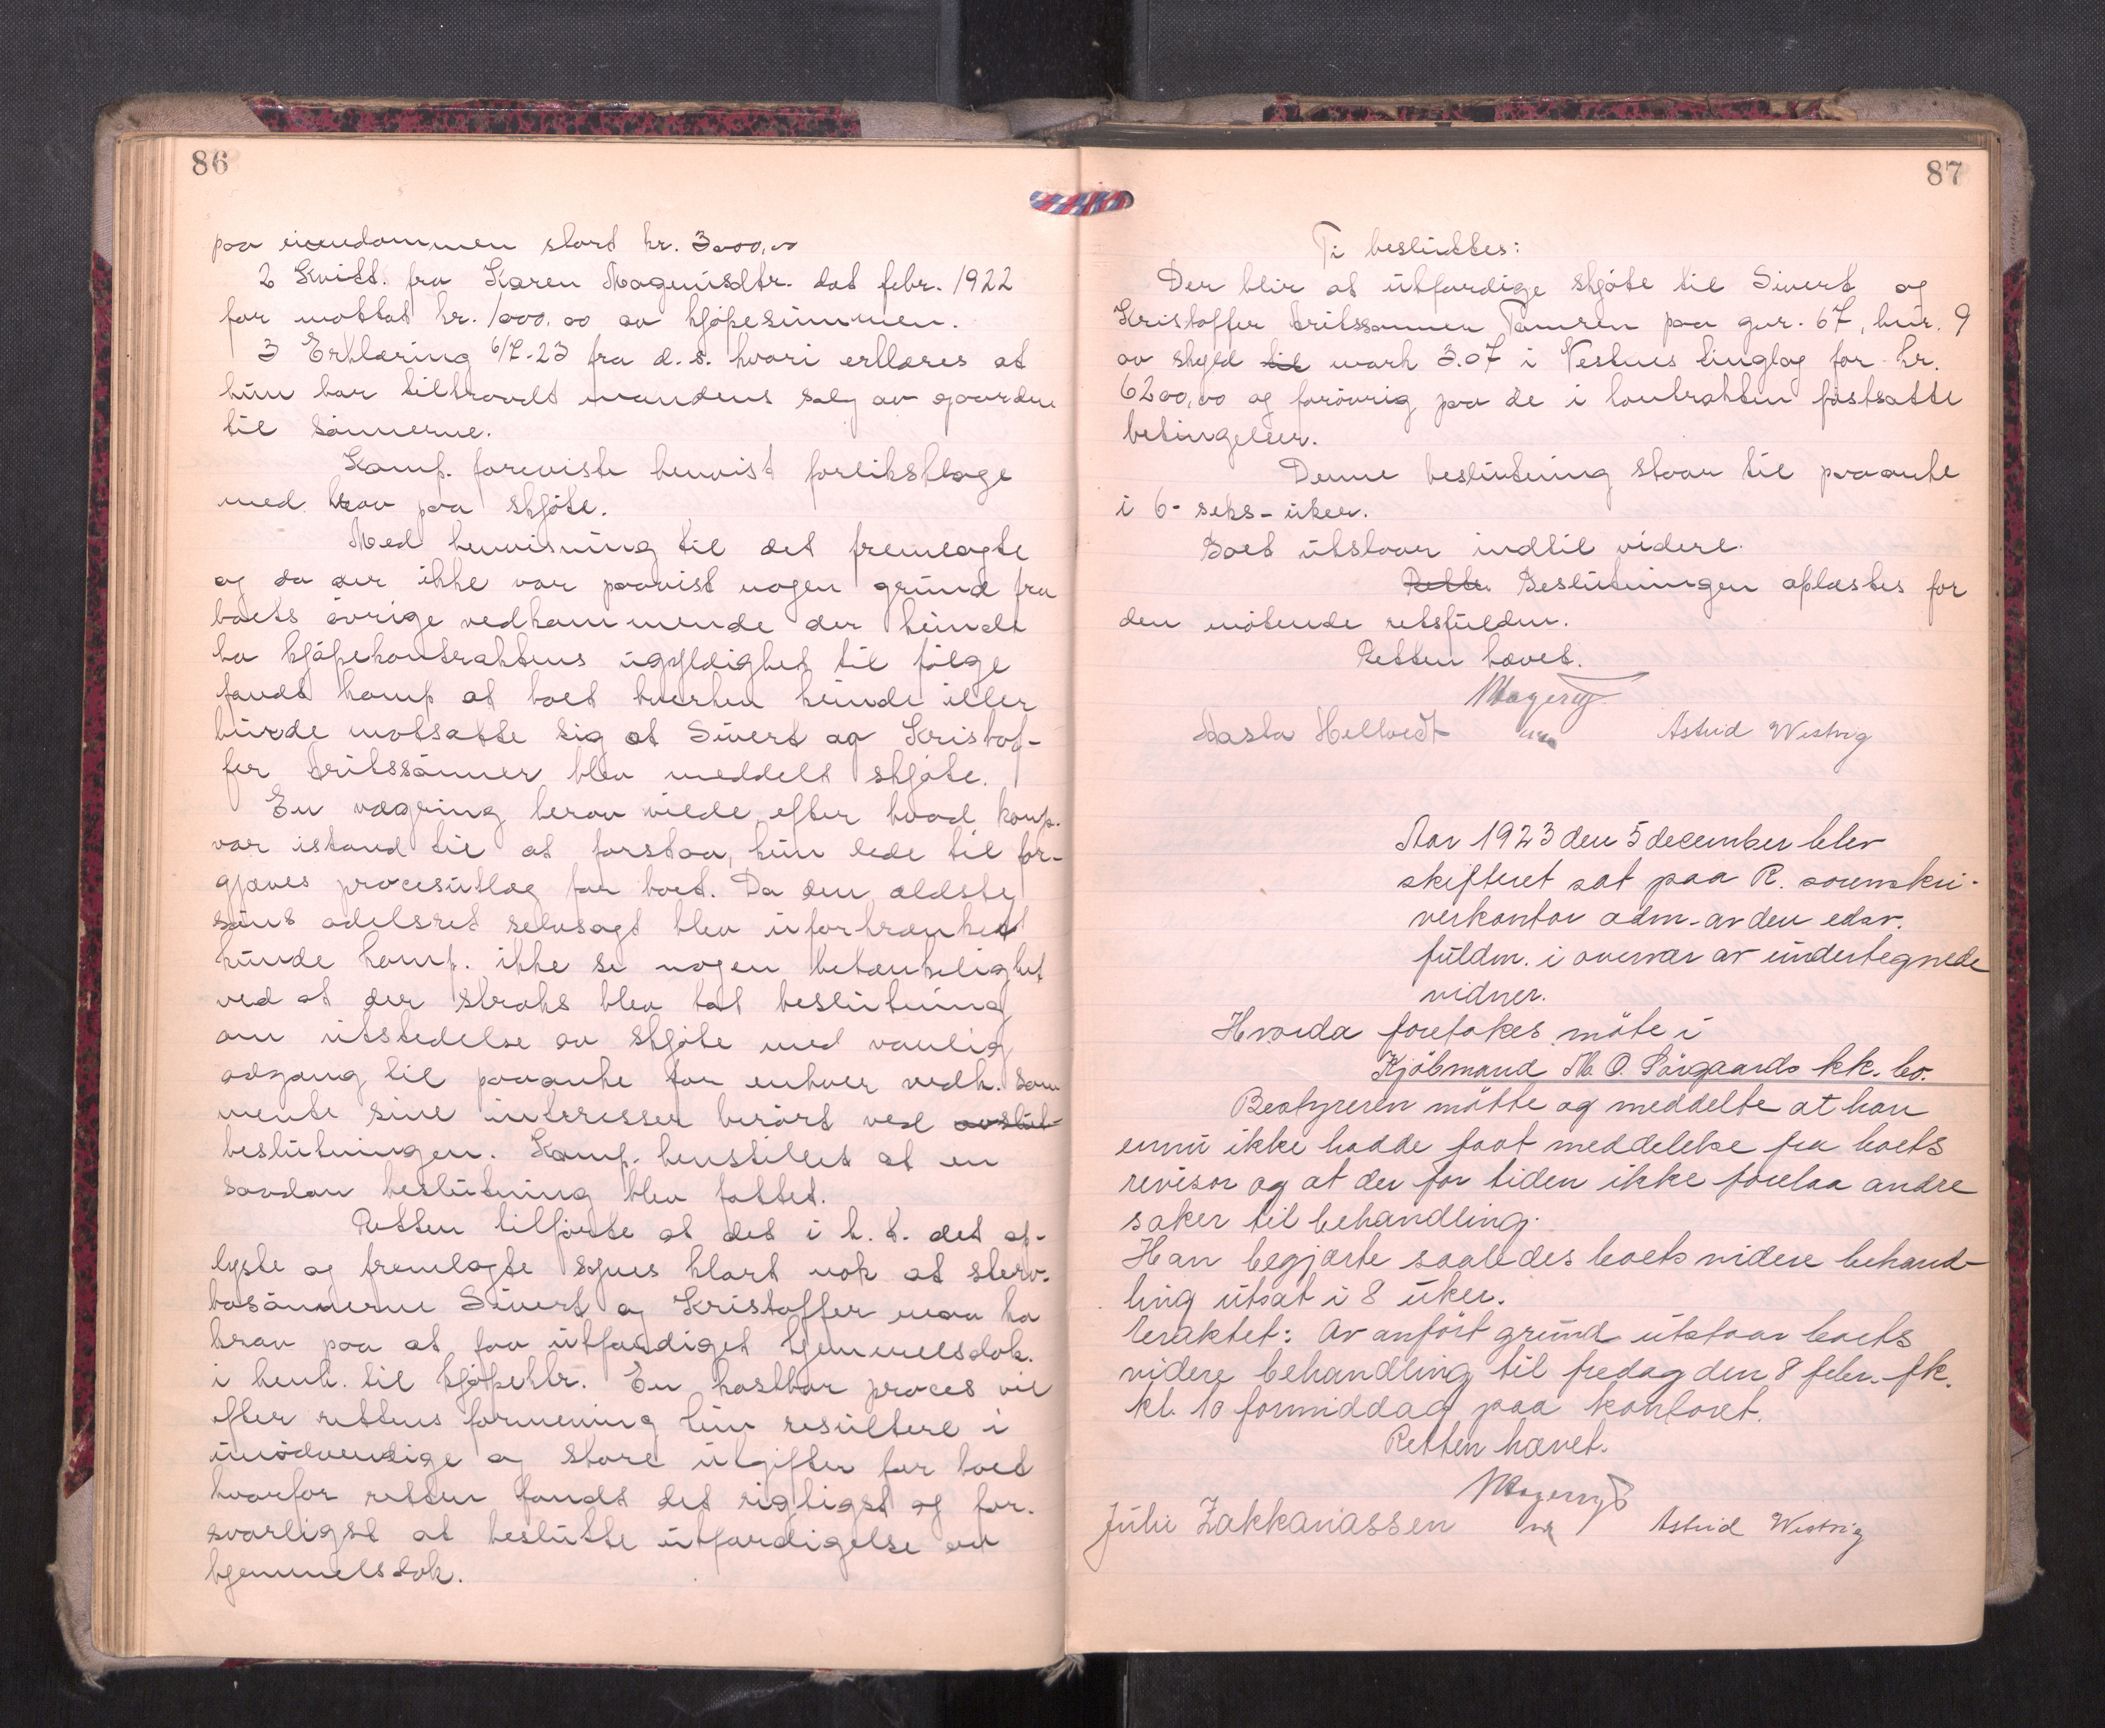 86
paa eiendommen stort kr. 3000,00
2 Kvitt. fra Karen Magnusdtr. dat febr. 1922
for mottat kr. 1000,00 av kjøpesummen.
3 Erklæring 6/7-23 fra d. s. hvori erklæres at
hun har tiltraadt mandens salg av gaarden
til sønnerne.
Komp. foreviste henvist forliksklage
med krav paa skjøte.
Med henvisning til det fremlagte
og da der ikke var paavist nogen grund fra
boets øvrige vedkommende der kunde
ha kjøpekontraktens ugyldighet til følge
fandt komp at boet hverken kunde eller
burde motsætte sig at Sivert og Kristof-
fer Eritssønner blev meddelt skjøte.
En vægring herav vilde, efter hvad komp.
var istand til at forstaa, kun lede til for-
gjæves procesutlæg for boet. Da den ældste
søns odelsret selvsagt blev uforkrænket
kunde komp. ikke se nogen betænkelighet
ved at der straks blev tat beslutning
om utstedelse av skjøte med vanlig
adgang til paaanke for enhver vedk. som
mente sine interesser berørt ved avslut-
beslutningen. Komp. henstillet at en
saadan beslutning blev fattet.
Retten tilførte at det i h. t. det op-
lyste og fremlagte synes klart nok at sterv-
bosønnerne Sivert og Kristoffer maa ha
krav paa at faa utfærdiget hjemmelsdok.
i henh. til kjøpektr. En kostbar proces vil
efter rettens formening kun resultere i
unødvendige og store utgifter for boet
hvorfor retten fandt det rigtigst og for-
svarligst at beslutte utfærdigelse av
hjemmelsdok.
87
Ti besluttes:
Der blir at utfærdige skjøte til Sivert og
Kristoffer Eritssønner Tomren paa gnr. 67, bnr. 9
av skyld til mark 3.07 i Vestnes tinglag for kr.
6200,00 og forøvrig paa de i kontrakten fastsatte
betingelser.
Denne beslutning staar til paaanke
i 6- seks- uker.
Boet utstaar indtil videre.
Rette. Beslutningen oplæstes for
den møtende retsfuldm.
Retten hævet.
Aasta Hellvedt
Astrid Westvig
Aar 1923 den 5 december blev
skifteret sat paa R. sorenskri-
verkontor adm. av den edsv.
fuldm. i overvær av undertegnede
vidner.
Hvorda foretokes møte i
Kjøbmand M. O. Sørgaards kk. bo.
Bestyreren møtte og meddelte at han
ennu ikke hadde faat meddelelse fra boets
revisor og at der for tiden ikke forelaa andre
saker til behandling.
Han begjærte saaledes boets videre behand-
ling utsat i 8 uker.
Eraktet: Av anført grund utstaar boets
videre behandling til fredag den 8 febr. fk.
kl. 10 formiddag paa kontoret.
Retten hævet.
Julie Zakkariassen
Astrid Westvig